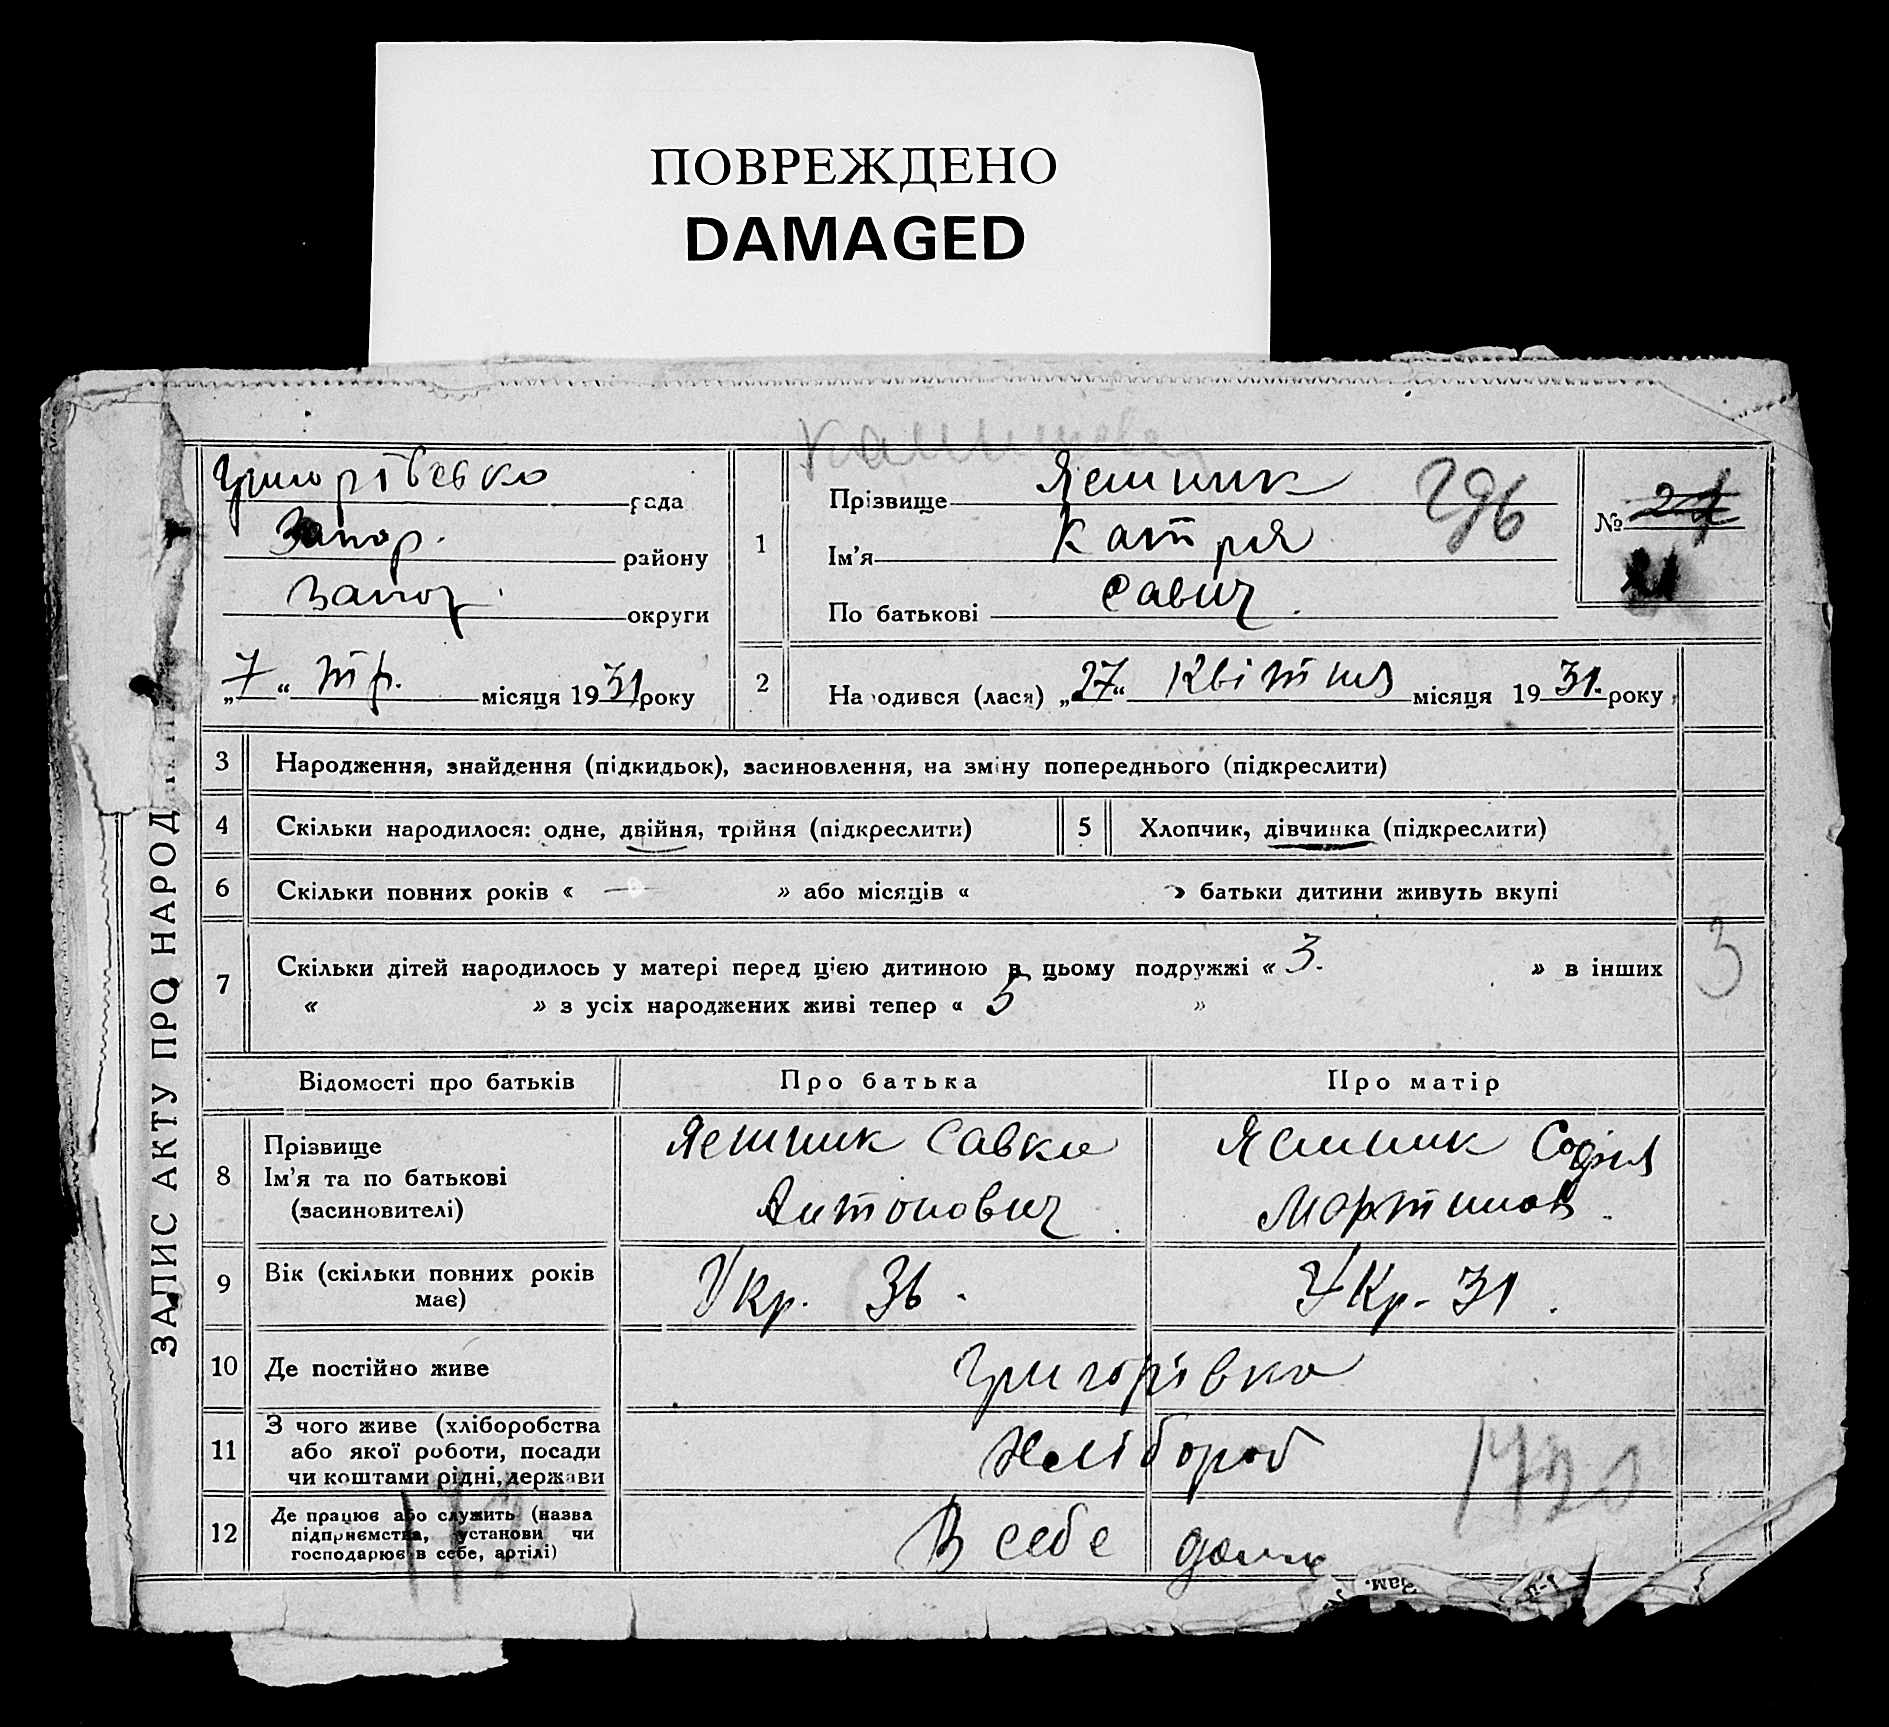 ПОВРЕЖДЕНО
DAMAGED
ЗАПИС АКТУ ПРО НАРОД
Григорівсько рада
Запор. району
Запор. округи
„7“ тр. місяця 1931 року
1
Прізвище Ясшник
Ім'я Катря
По батькові Савич.
296
№ 21
2
Народився (лася) „27“ Квітня місяця 1931. року
3 Народження, знайдення (підкидьок), засиновлення, на зміну попереднього (підкреслити)
4 Скільки народилося: одне, двійня, трійня (підкреслити)
5 Хлопчик, дівчинка (підкреслити)
6 Скільки повних років « — » або місяців « » батьки дитини живуть вкупі
7 Скільки дітей народилось у матері перед цією дитиною в цьому подружжі « 3. » в інших
« » з усіх народжених живі тепер « 5 »
3
Відомості про батьків Про батька Про матір
8 Прізвище
Ім'я та по батькові
(засиновителі)
Ясшник Савка
Антонович.
Ясшник Софія
Мартинов.
9 Вік (скільки повних років
має)
Укр. 36.
Укр. 31.
10 Де постійно живе Григорівка
11 З чого живе (хліборобства
або якої роботи, посади
чи коштами рідні, держави
Хлібороб
12 Де працює або служить (назва
підприємства, установи чи
господарює в себе, артілі)
В себе дома
Зам.